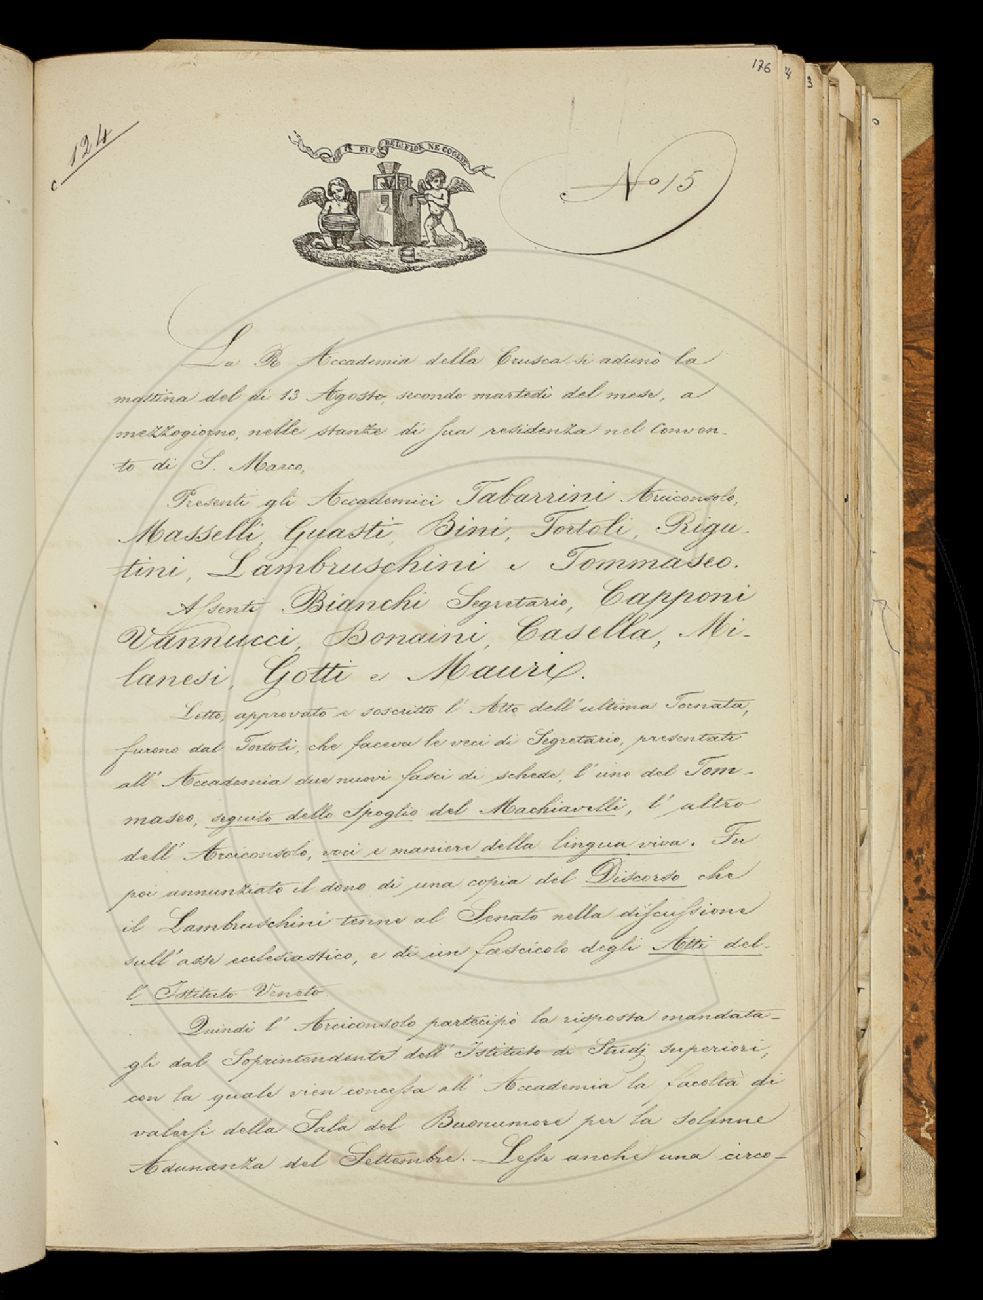 176
124
IL PIÙ BEL FIOR NE COGLIE
No 15
La R. Accademia della Crusca si adunò la
mattina del dì 13 Agosto, secondo martedì del mese, a
mezzogiorno, nelle stanze di sua residenza nel Conven-
to di S. Marco.
Presenti gli Accademici Tabarrini Arciconsolo,
Masselli, Guasti, Bini, Tortoli, Rigu-
tini, Lambruschini e Tommaseo.
Assenti Bianchi Segretario, Capponi
Vannucci, Bonaini, Casella, Mi-
lanesi, Gotti e Mauri.
Letto, approvato e soscritto l'Atto dell'ultima Tornata,
furono dal Tortoli, che faceva le veci di Segretario, presentati
all'Accademia due nuovi fasci di schede, l'uno del Tom-
maseo, seguito dello Spoglio del Machiavelli, l'altro
dell'Arciconsolo, voci e maniere della lingua viva. Fu
poi annunziato il dono di una copia del Discorso che
il Lambruschini tenne al Senato nella discussione
sull'asse ecclesiastico, e di un fascicolo degli Atti del-
l'Istituto Veneto.
Quindi l'Arciconsolo partecipò la risposta mandata-
gli dal Soprintendente dell'Istituto di Studj superiori,
con la quale vien concessa all'Accademia la facoltà di
valersi della Sala del Buonumore per la solenne
Adunanza del Settembre. Lesse anche una circo-